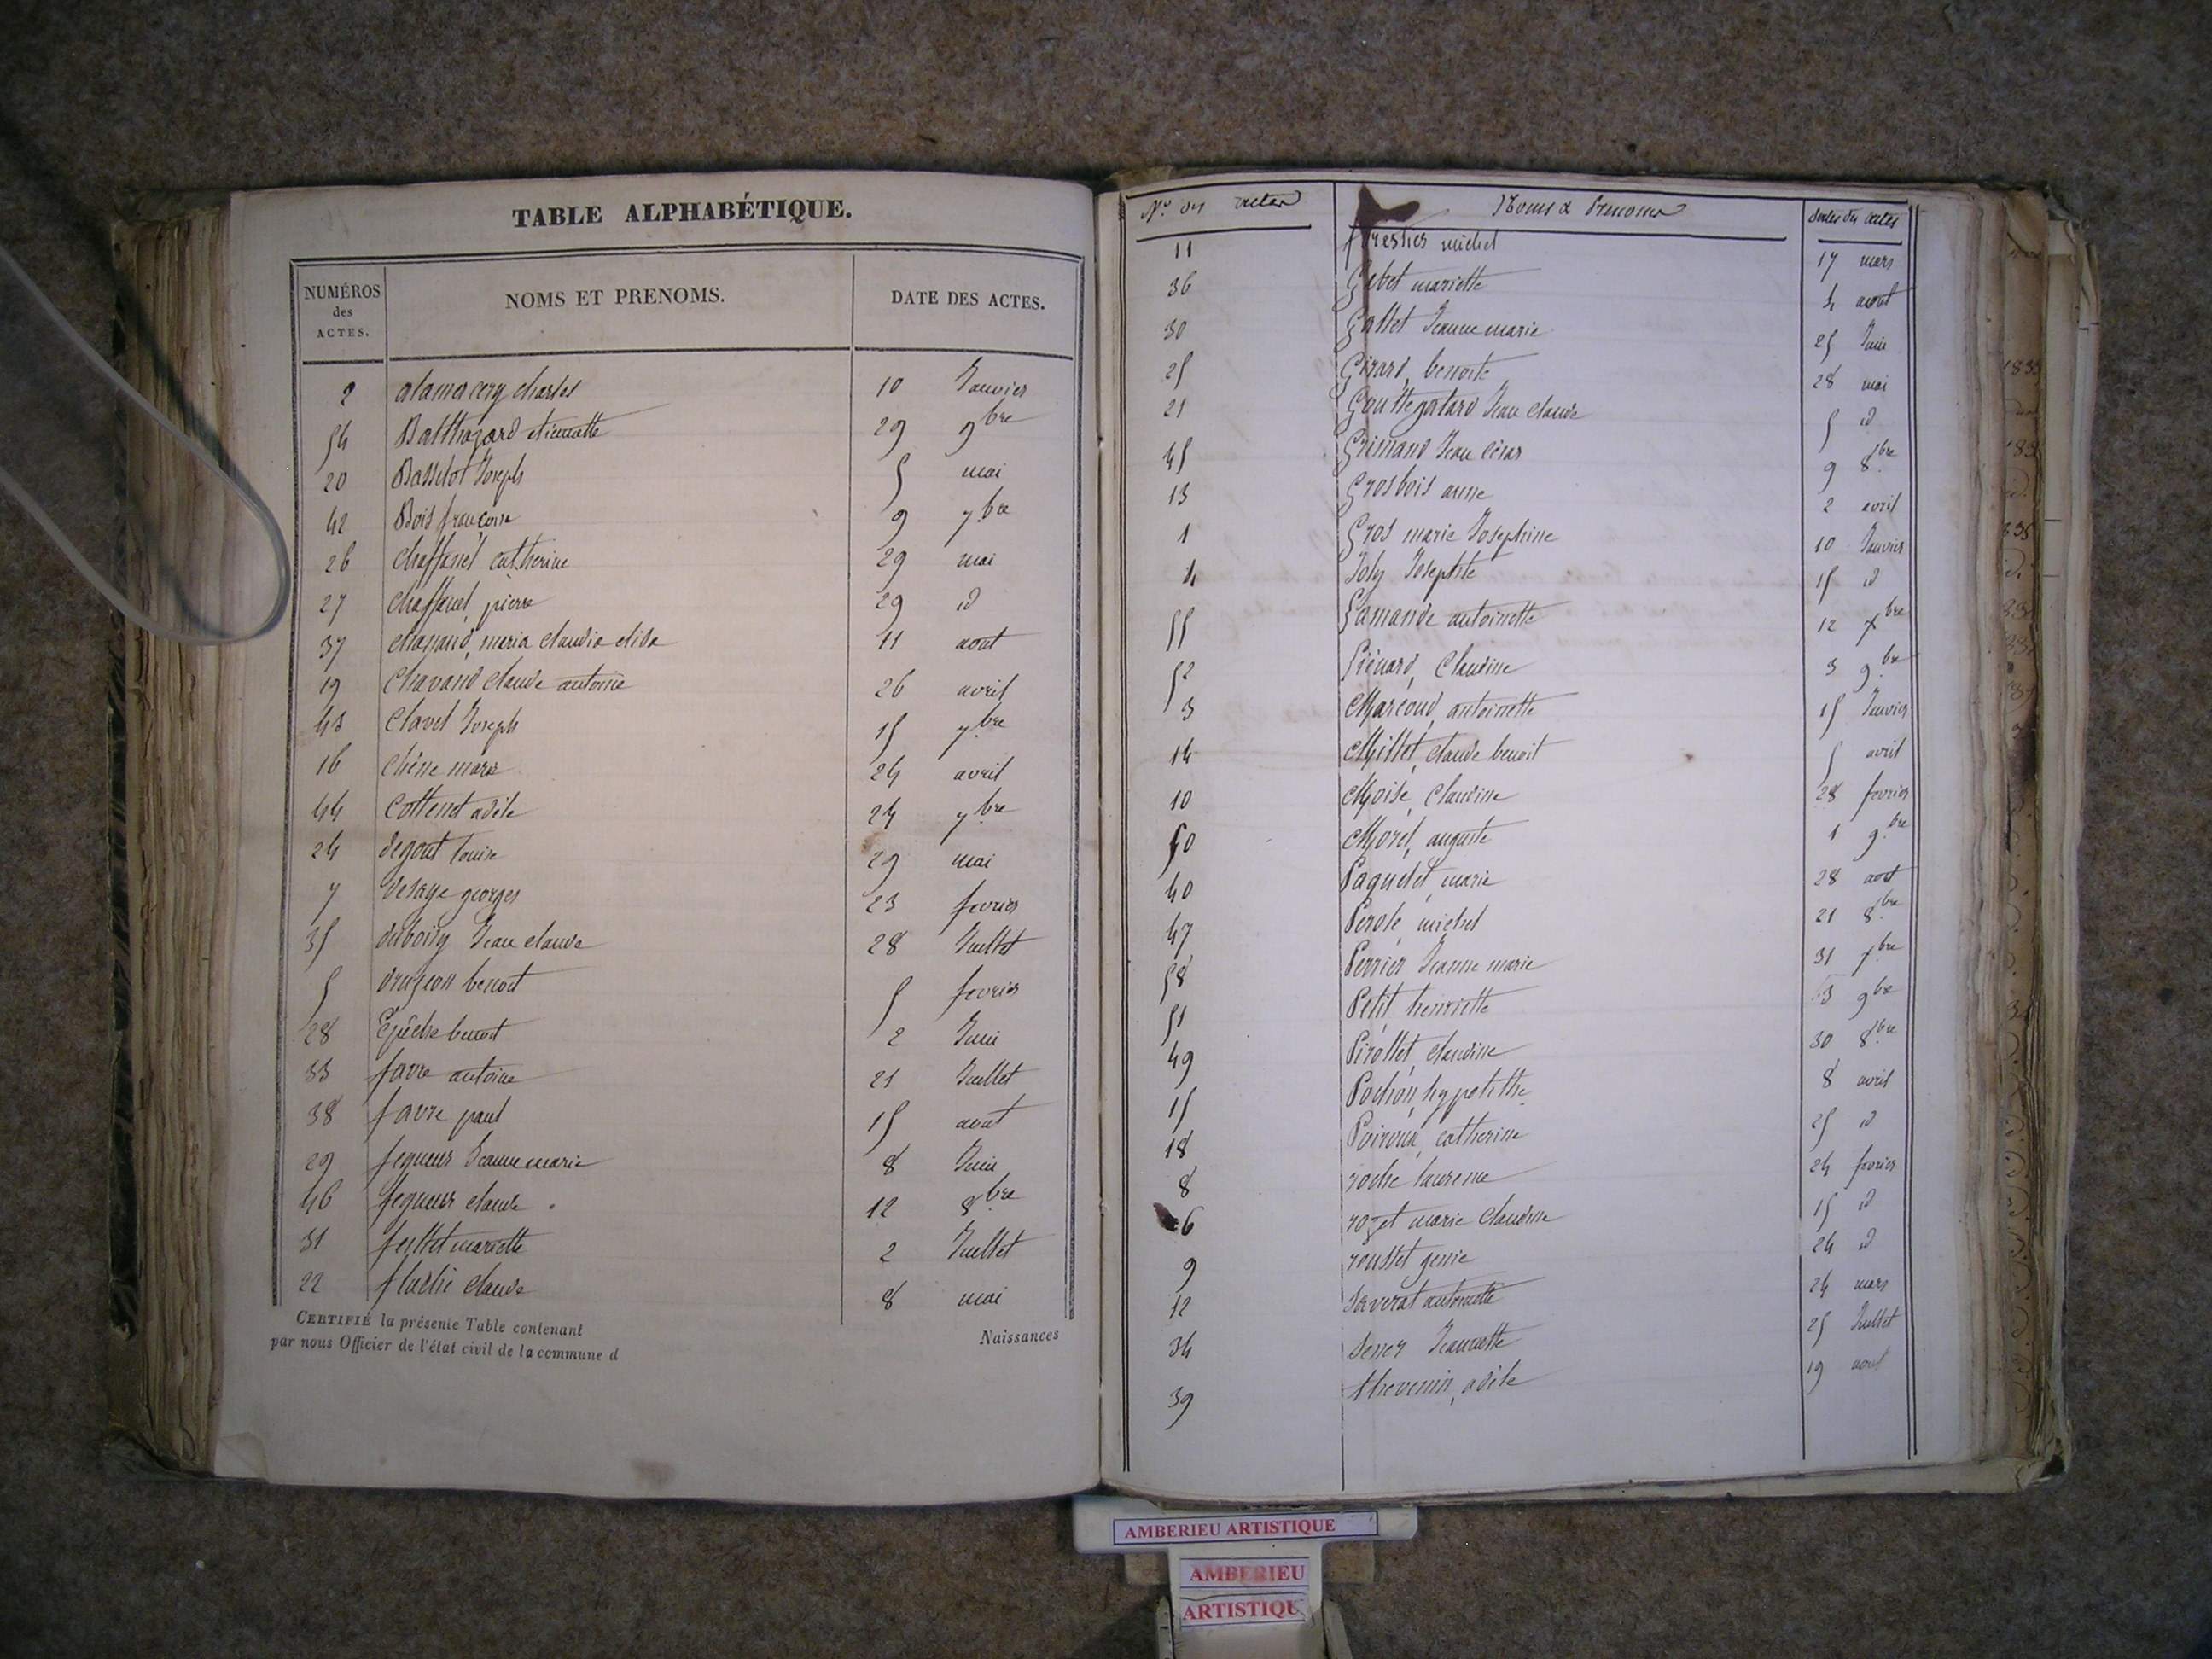 TABLE ALPHABÉTIQUE.
NUMÉROS des ACTES. NOMS ET PRENOMS. DATE DES ACTES.
2 alamercery charles 10 Janvier
54 Balthazard etiennette 29 9bre
20 Basselot Joseph 5 mai
42 Bois françoise 9 7bre
26 Chaffanel Catherine 29 mai
27 Chaffanel pierre 29 id
37 maria claudia elisa 11 aout
19 Chavand Claude antoine 26 avril
43 Clavel Joseph 15 7bre
16 Chêne marie 24 avril
44 Cottenet adèle 24 7bre
24 degout louise 29 mai
7 georges 23 fevrier
35 Jean claude 28 Juillet
5 druzon benoit 5 fevrier
28 Epêche benoit 2 Juin
33 favre antoine 21 Juillet
38 favre paul 15 aout
29 fequeur Jeanne marie 8 Juin
46 fequeur claude 12 8bre
31 mariette 2 Juillet
22 claude 8 mai
CERTIFIÉ la présente Table contenant Naissances
par nous Officier de l'état civil de la commune d
Nos des actes Noms & Prenoms Dates des actes
11 forestier michel 17 mars
36 Gabet mariette 4 aout
30 Gallet Jeanne marie 25 Juin
25 Girard, benoite 28 mai
21 Gouttegatard Jean claude 5 id
45 Grimand Jean César 9 8bre
13 Grosbois anne 2 avril
1 Gros marie Josephine 10 Janvier
4 Joly Josephte 15 id
55 Lamande antoinette 12 xbre
52 Liénard, Claudine 3 9bre
3 Marcoud, antoinette 15 Janvier
14 Millet, claude benoit 5 avril
10 Moïse, Claudine 28 fevrier
50 Morel, auguste 1 9bre
40 Paquelet, marie 28 aout
47 Perole, michel 21 8bre
58 Perrier Jeanne marie 31 xbre
51 Petit henriette 3 9bre
49 Pirollet, claudine 30 8bre
15 Pochon, hypolithe 8 avril
18 Poiroux, catherine 25 id
8 roche laurence 24 fevrier
6 rozet marie Claudine 15 id
9 roustet genie 24 id
12 Savarat antoinette 24 mars
34 Jeannette 25 Juillet
39 thevenin, adèle 19 aout
AMBERIEU ARTISTIQUE
AMBERIEU
ARTISTIQU